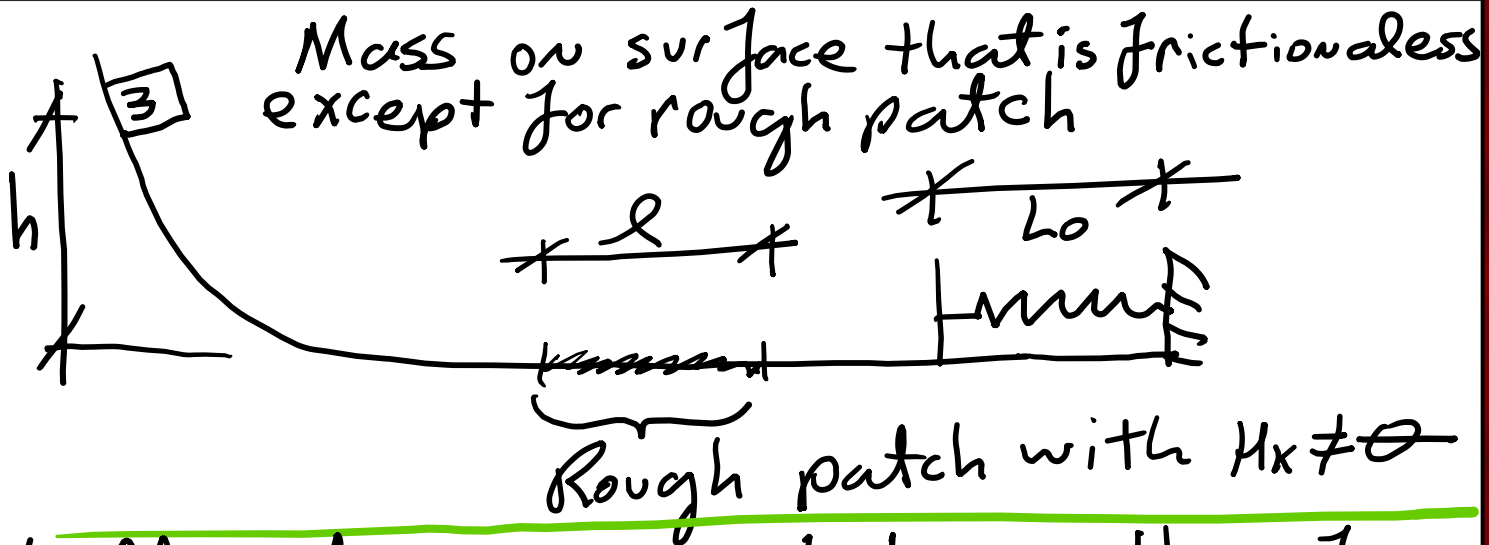 Mass on surface that is frictionaless
except for rough patch
3
h
l
Lo
Rough patch with μk ≠ 0